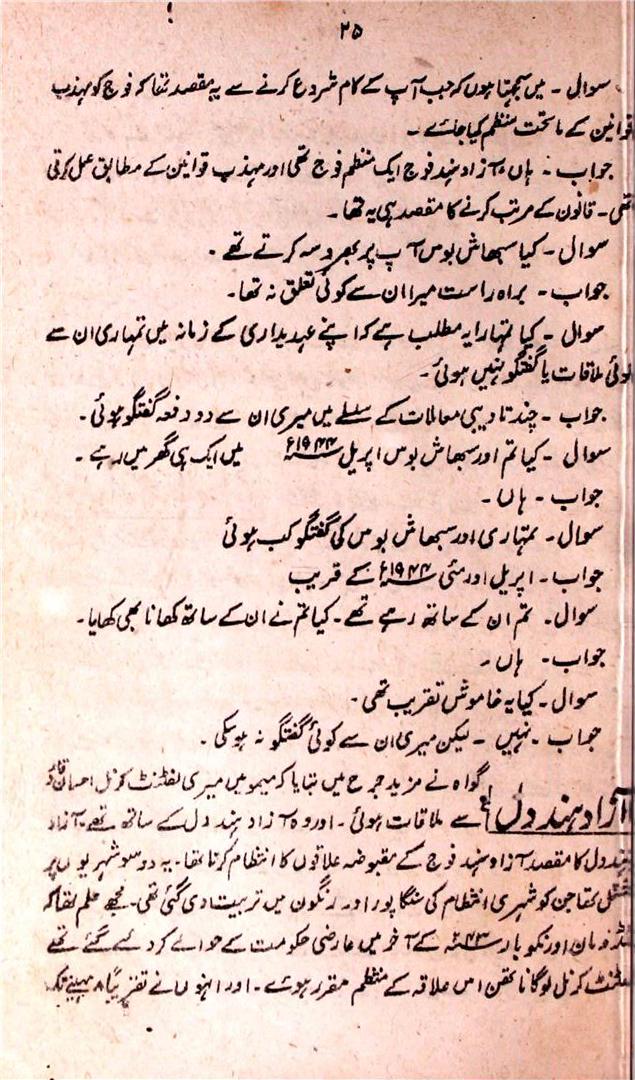 ۲۵
سوال - میں سمجھتا ہوں کہ جب آپ کے کام شروع کرنے سے یہ مقصد تھا کہ فوج کو مہذب
قوانین کے ماتحت منظم کیا جائے -
جواب - ہاں آزاد ہند فوج ایک منظم فوج تھی اور مہذب قوانین کے مطابق عمل کرتی
تھی - قانون کے مرتب کرنے کا مقصد ہی یہ تھا -
سوال - کیا سبھاش بوس آپ پر بھروسہ کرتے تھے -
جواب - براہ راست میرا ان سے کوئی تعلق نہ تھا -
سوال - کیا تمہارا یہ مطلب ہے کہ اپنے عہدیداری کے زمانہ میں تمہاری ان سے
کوئی ملاقات یا گفتگو نہیں ہوئی -
جواب - چند تادیبی معاملات کے سلسلے میں میری ان سے دو دفعہ گفتگو ہوئی -
سوال - کیا تم اور سبھاش بوس اپریل ۱۹۴۴ء میں ایک ہی گھر میں رہے -
جواب - ہاں -
سوال - تمہاری اور سبھاش بوس کی گفتگو کب ہوئی
جواب - اپریل اور مئی ۱۹۴۴ء کے قریب
سوال - تم ان کے ساتھ رہے تھے - کیا تم نے ان کے ساتھ کھانا بھی کھایا -
جواب - ہاں -
سوال - کیا یہ خاموش تقریب تھی -
جواب - نہیں - لیکن میری ان سے کوئی گفتگو نہ ہوسکی -
گواہ نے مزید جرح میں بتایا کہ میمو میں میری لفٹنٹ کرنل احسان قادر
آزاد ہند دل
سے ملاقات ہوئی - اور وہ آزاد ہند دل کے ساتھ تھے - آزاد
ہند دل کا مقصد آزاد ہند فوج کے مقبوضہ علاقوں کا انتظام کرنا تھا - یہ دو سو شہریوں پر
مشتمل تھا جن کو شہری انتظام کی سنگاپور اور رنگون میں تربیت دی گئی تھی - مجھے علم تھا کہ
انڈومان اور نکوبار ۴۳ء کے آخر میں عارضی حکومت کے حوالے کر دئے گئے تھے
لفٹنٹ کرنل لوگاناتھن اس علاقہ کے منتظم مقرر ہوئے - اور انہوں نے تقریباً ۸ مہینے تک